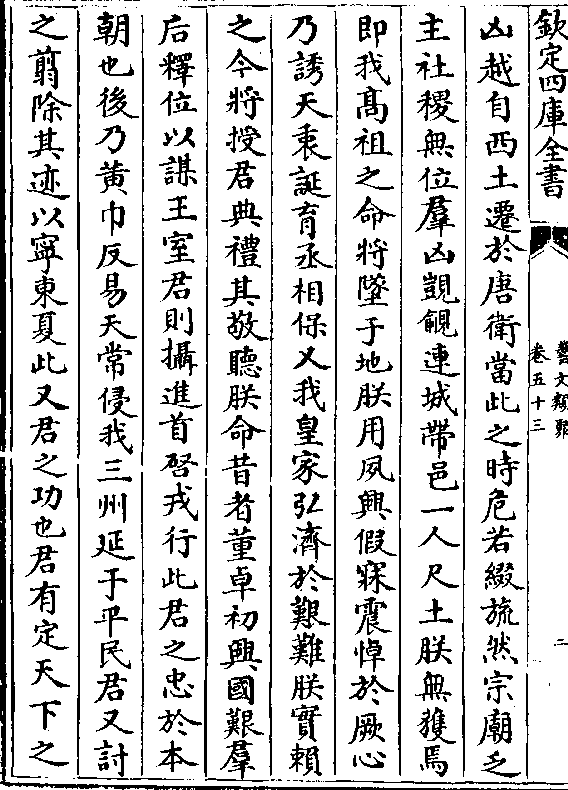 欽定四庫全書
藝文類聚
卷五十三
二
凶越自西土遷於唐衛當此之時危若綴旒然宗廟乏
主社稷無位羣凶覬覦連城帶邑一人尺土朕無獲焉
即我髙祖之命將墜于地朕用夙興假寐震悼於厥心
乃誘天衷誕育丞相保乂我皇家弘濟於艱難朕實賴
之今將授君典禮其敬聽朕命昔者董卓初興國艱羣
后釋位以謀王室君則攝進首啓戎行此君之忠於本
朝也後乃黄巾反易天常侵我三州延于平民君又討
之翦除其迹以寧東夏此又君之功也君有定天下之